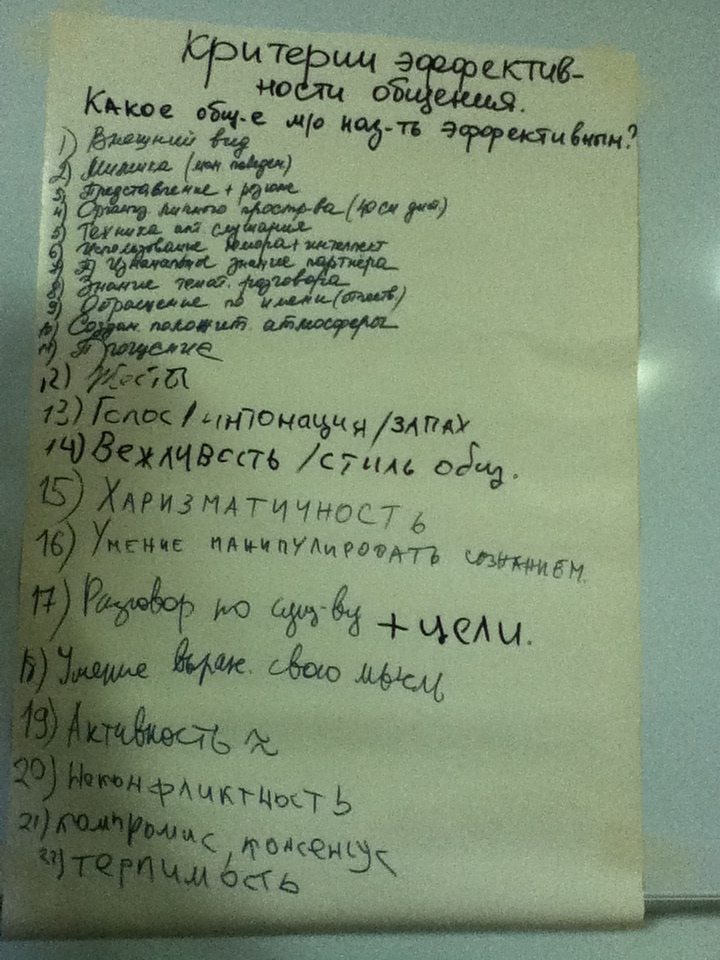 Критерии эффектив-
ности общения.
Какое общ-е м/о наз-ть эффективным?
1) Внешний вид
2) Мимика (ман поведен)
3) Представление + резюме
4) Организ. личного простр-ва (40 см дист)
5) Техника акт. слушания
6) Использование юмора + интеллект
7) Изначальное знание партнера
8) Знание темат. разговора
9) Обращение по имени (отчеств)
10) Создан. положит. атмосферы
11) Прощение
12) Жесты
13) Голос / интонация / запах
14) Вежливость / стиль общ.
15) Харизматичность
16) Умение манипулировать сознанием.
17) Разговор по сущ-ву + цели.
18) Умение выраж. свою мысль
19) Активность ≈
20) Неконфликтность
21) компромис, консенсус
22) терпимость